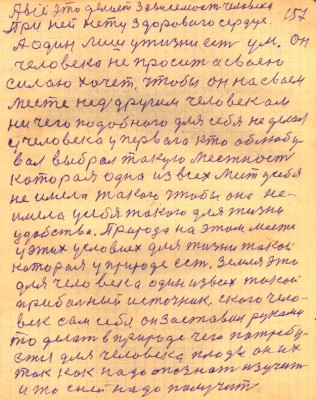 А всё это делает Зависимость человека
При ней нету здорового сердце.
А один лиш у жизни ест ум. Он
человека не просит а своею
силаю хочет, чтобы он на своем
месте над другим человеком
ни чего подобного для себя не делал
у человека у первага кто облюбу
вал выбрал такую местност
которая одна из всех мест у себя
не имела такого чтобы она не-
имела у себя такого для жизни
удобства. Природа на этом месте
у этих условиях для жизни такой
которая у природе ест. Земля это
для человека один из всех такой
прибальный источник, с кого чело-
век сам себя он заставил руками
то делат в природе чего потребу-
ется для человека плоды он их
так как надо опознат изучит
и то с ней надо получит
157